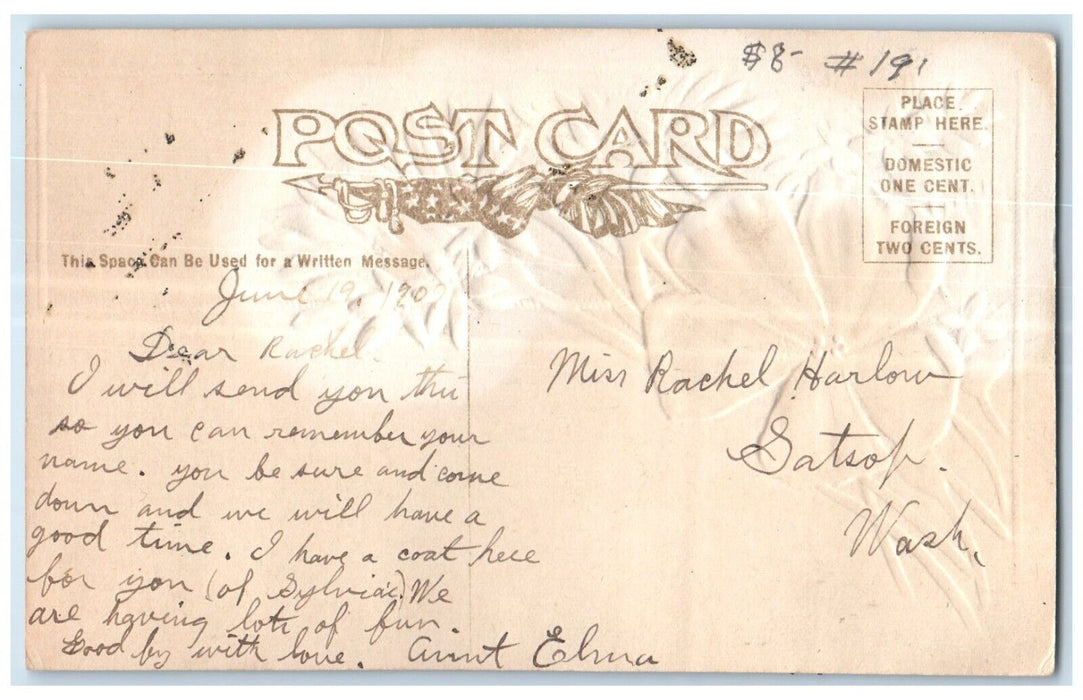 $8- #191
POST CARD
PLACE
STAMP HERE.
DOMESTIC
ONE CENT.
FOREIGN
TWO CENTS.
This Space Can Be Used for a Written Message.
June 19, 1909
Dear Rachel.
I will send you this
so you can remember your
name. you be sure and come
down and we will have a
good time. I have a coat here
for you (of Sylvia's). We
are having lots of fun.
Good by with love. Aunt Elma
Miss Rachel Harlow
Satsop.
Wash.